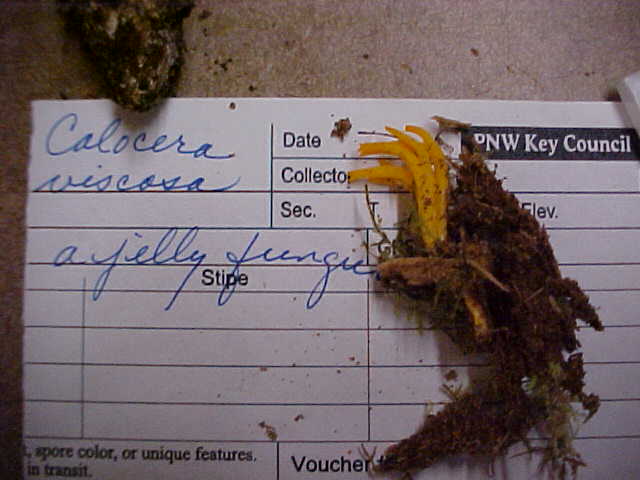 Calocera Date PNW Key Council
viscosa Collecto
Sec. T Elev.
a jelly fungi
Stipe
, spore color, or unique features.
in transit. Voucher #